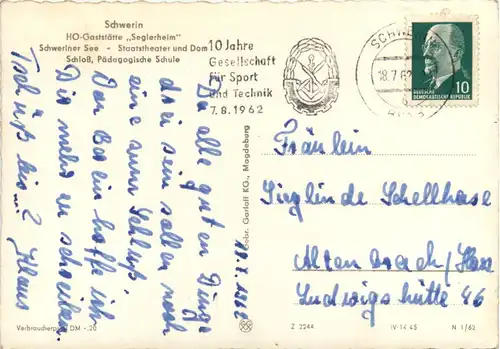 Schwerin
HO-Gaststätte „Seglerheim"
Schweriner See - Staatstheater und Dom
Schloß, Pädagogische Schule
10 Jahre
Gesellschaft
für Sport
und Technik
7.8.1962
SCHWE
18.7.62
DEUTSCHE
DEMOKRATISCHE REPUBLIK
10
18.7.1962
Da alle guten Dinge
drei sein sollen noch
eine zum Schluß.
Von Bo ein hoffe ich
Dir mehr zu schreiben.
Tschüß bis ...? Klaus
Fräulein
Sieglinde Schellhase
Altenbrach/Harz
Ludwigshütte 46
Gebr. Garloff KG., Magdeburg
Verbraucherpreis DM -.20
Z 2244
IV-14-45
N 1/62